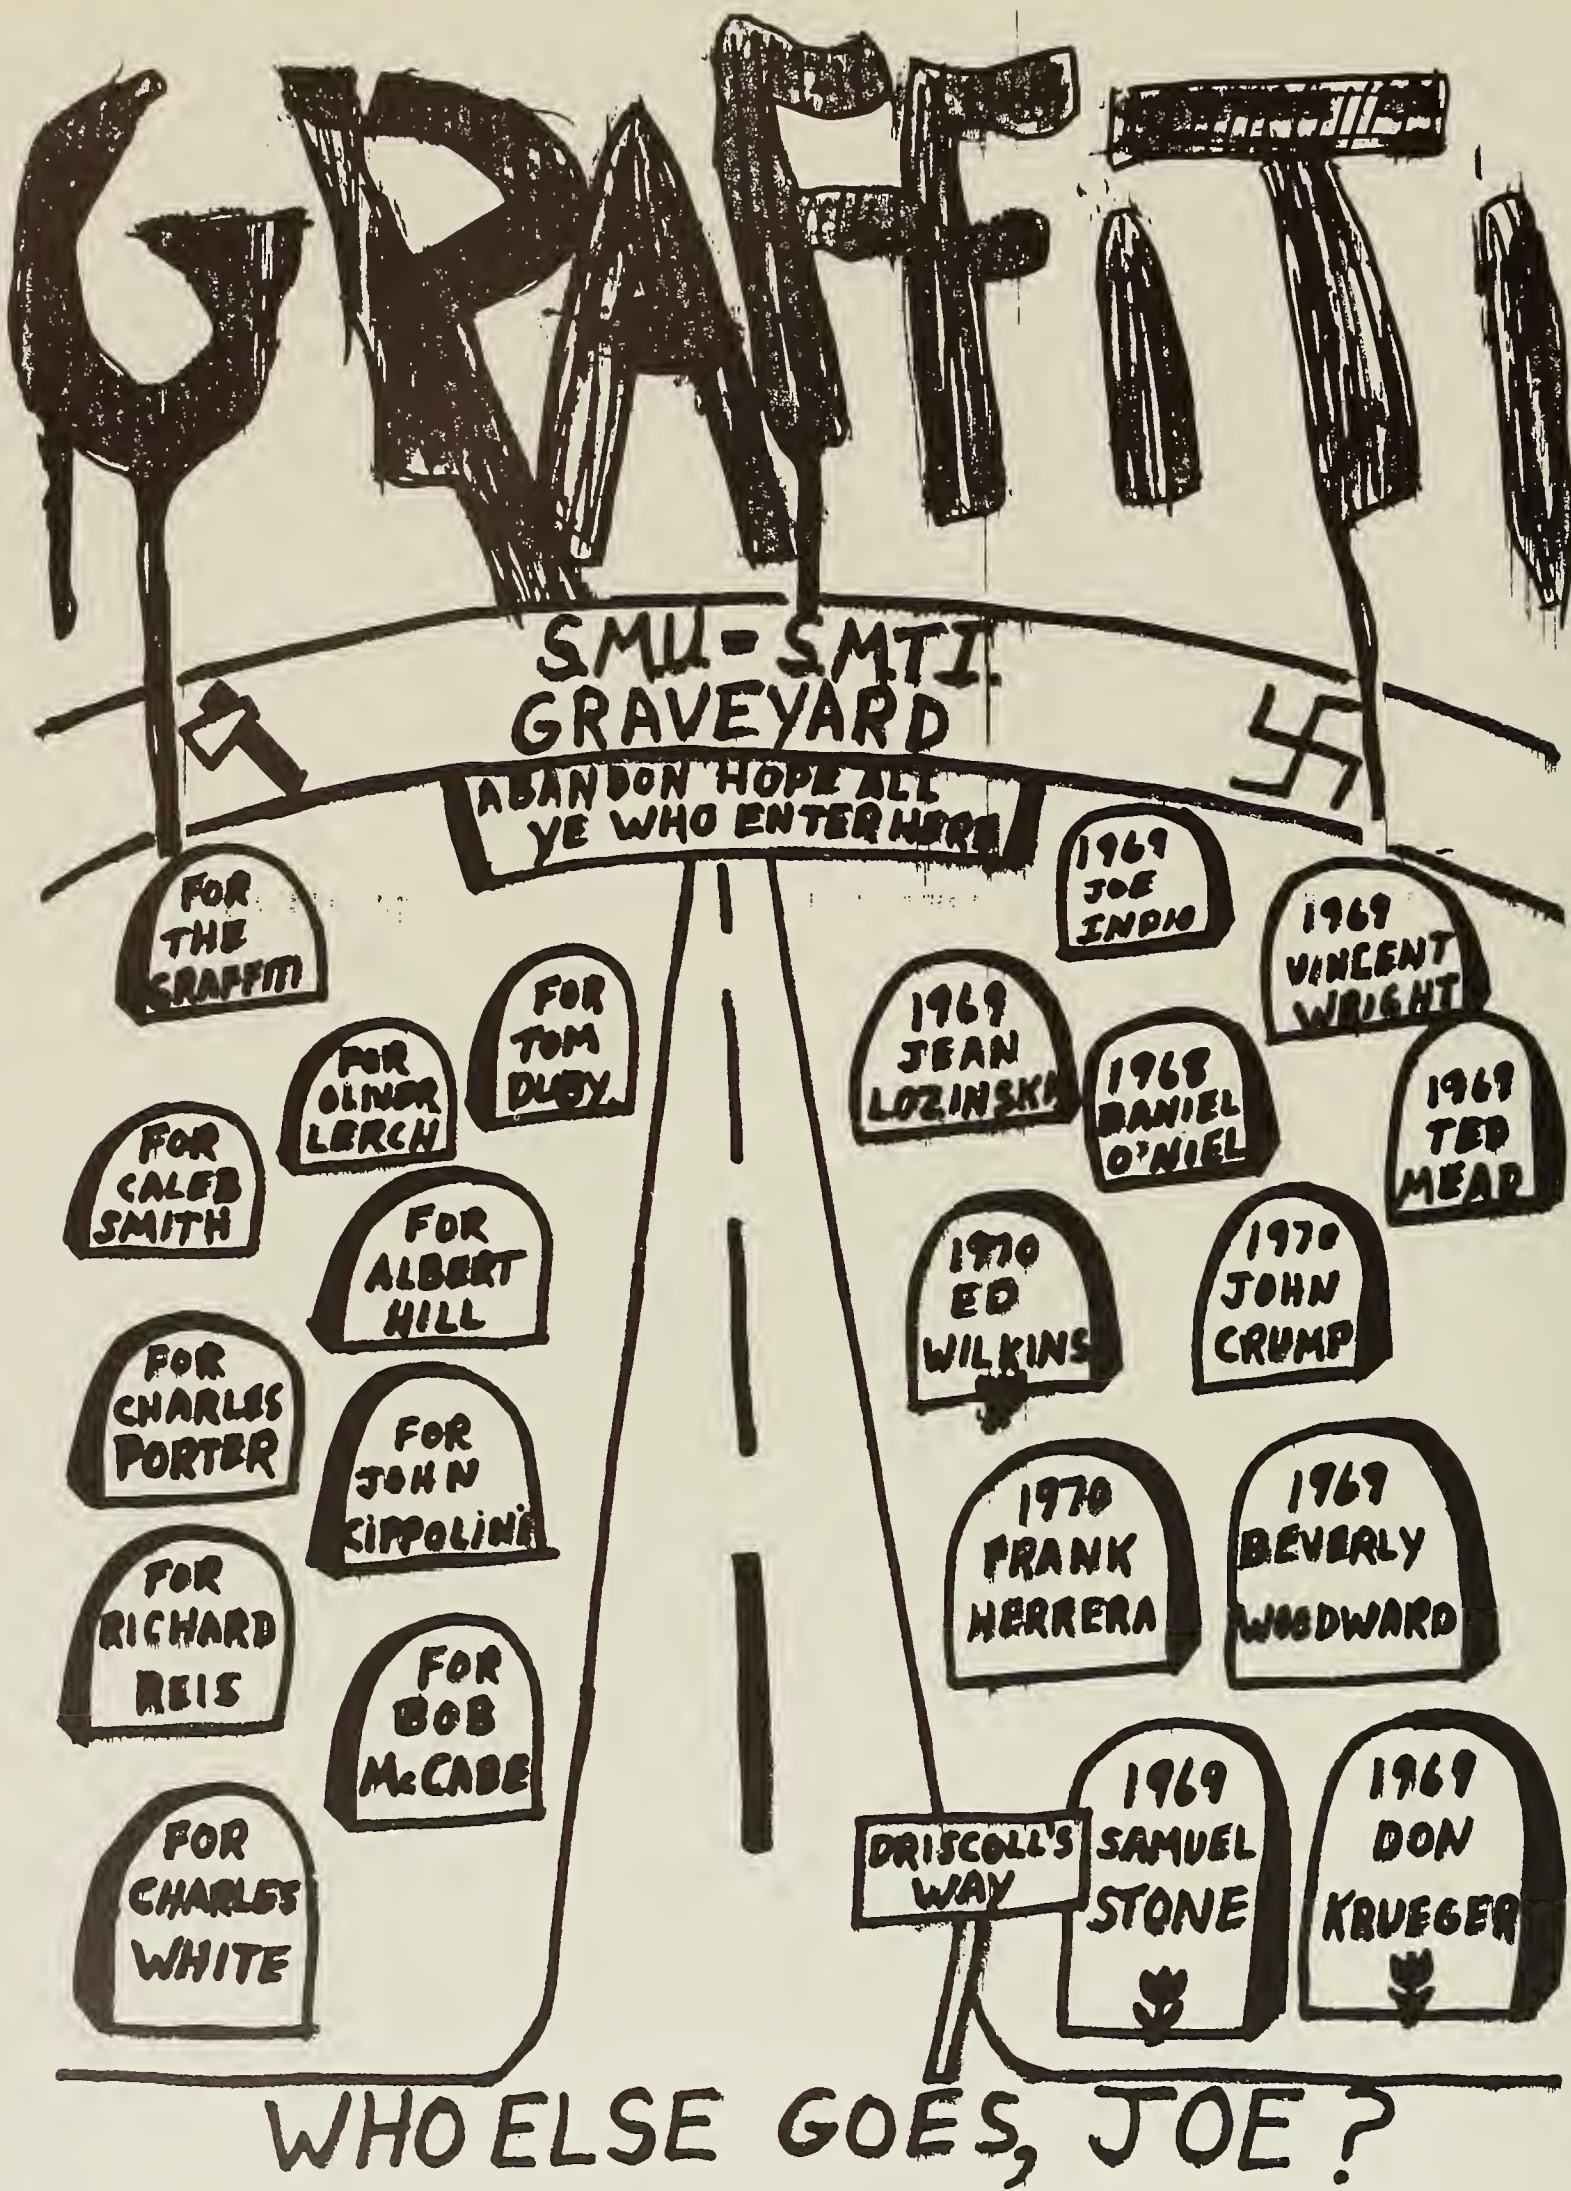 GRAFFITI
S.M.U. - S.M.T.I.
GRAVEYARD
ABANDON HOPE ALL
YE WHO ENTER HERE
FOR
THE
GRAFFITI
FOR
TOM
DUBY
FOR
OLIVER
LERCH
FOR
CALEB
SMITH
FOR
ALBERT
HILL
FOR
CHARLES
PORTER
FOR
JOHN
CIPPOLINI
FOR
RICHARD
REIS
FOR
BOB
McCABE
FOR
CHARLES
WHITE
1969
JOE
INDIO
1969
VINCENT
WRIGHT
1969
JEAN
LOZINSKI
1968
DANIEL
O'NIEL
1969
TED
MEAD
1970
ED
WILKINS
1970
JOHN
CRUMP
1970
FRANK
HERRERA
1969
BEVERLY
WOODWARD
1969
SAMUEL
STONE
1969
DON
KRUEGER
DRISCOLL'S
WAY
WHO ELSE GOES, JOE?